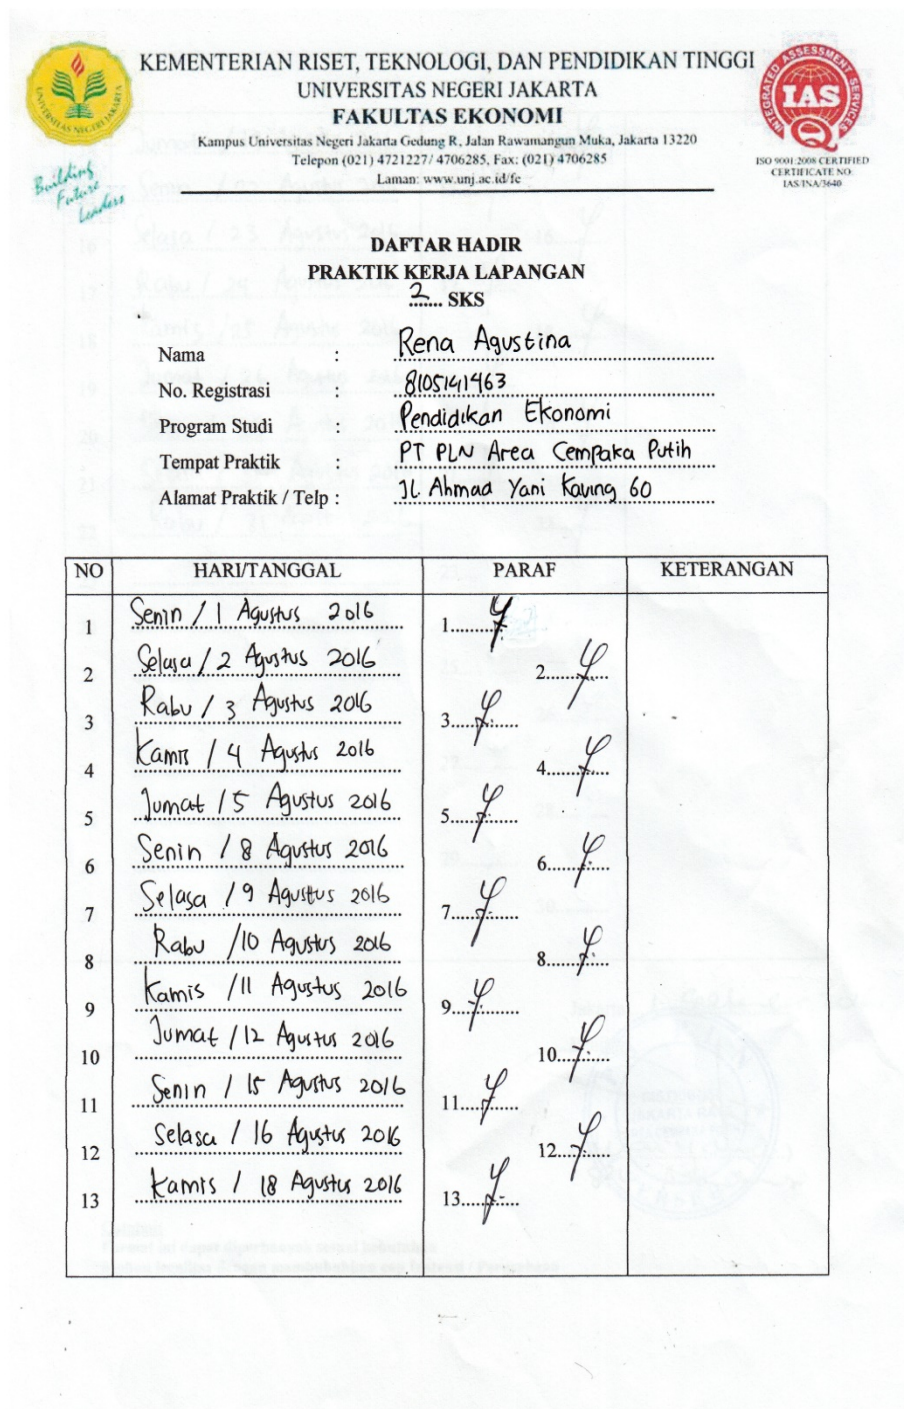 KEMENTERIAN RISET, TEKNOLOGI, DAN PENDIDIKAN TINGGI
UNIVERSITAS NEGERI JAKARTA
FAKULTAS EKONOMI
Kampus Universitas Negeri Jakarta Gedung R, Jalan Rawamangun Muka, Jakarta 13220
Telepon (021) 4721227/ 4706285, Fax: (021) 4706285
Laman: www.unj.ac.id/fe
UNIVERSITAS NEGERI JAKARTA
Building
Future
Leaders
INTEGRATED ASSESSMENT SERVICES
IAS
ISO 9001:2008 CERTIFIED
CERTIFICATE NO:
IAS/INA/3640
DAFTAR HADIR
PRAKTIK KERJA LAPANGAN
2 SKS
Nama : Rena Agustina
No. Registrasi : 8105141463
Program Studi : Pendidikan Ekonomi
Tempat Praktik : PT PLN Area Cempaka Putih
Alamat Praktik / Telp : Jl. Ahmad Yani Kaving 60
NO HARI/TANGGAL PARAF KETERANGAN
1 Senin / 1 Agustus 2016 1
2 Selasa / 2 Agustus 2016 2
3 Rabu / 3 Agustus 2016 3
4 Kamis / 4 Agustus 2016 4
5 Jumat / 5 Agustus 2016 5
6 Senin / 8 Agustus 2016 6
7 Selasa / 9 Agustus 2016 7
8 Rabu / 10 Agustus 2016 8
9 Kamis / 11 Agustus 2016 9
10 Jumat / 12 Agustus 2016 10
11 Senin / 15 Agustus 2016 11
12 Selasa / 16 Agustus 2016 12
13 Kamis / 18 Agustus 2016 13